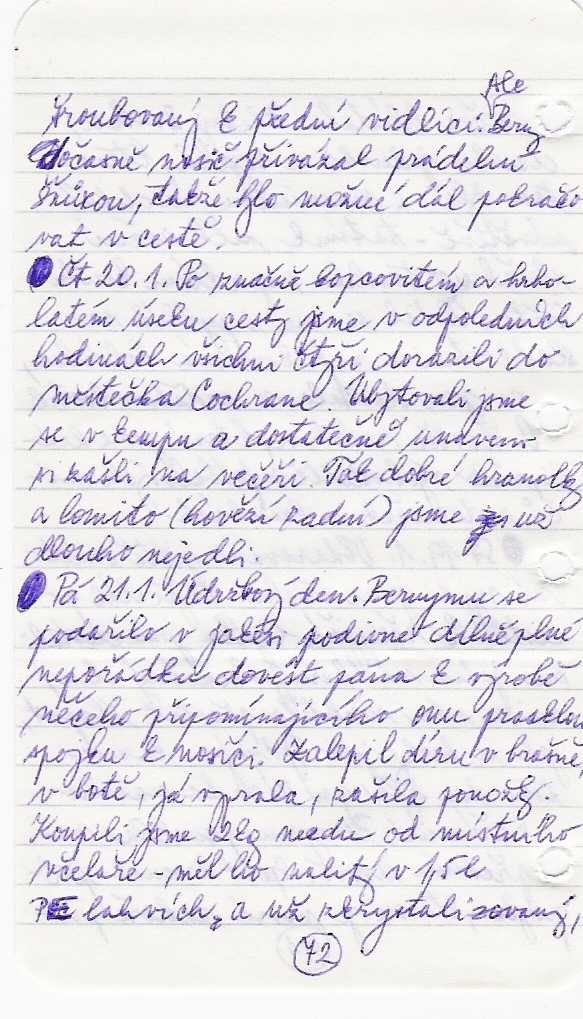 Ale
šroubovaný k přední vidlici. Berny
dočasně nosič přivázal prádelní
šňůrou, takže bylo možné dál pokračo
vat v cestě.
Čt 20.1. Po značně kopcovitém a hrbo-
latém úseku cesty jsme v odpoledních
hodinách všichni čtyři dorazili do
městečka Cochrane. Ubytovali jsme
se v kempu a dostatečně unaveni
si zašli na večeři. Tak dobré hranolky
a lomito (hovězí zadní) jsme už
dlouho nejedli.
Pá 21.1. Údržbový den. Bernymu se
podařilo v jakési podivné dílně plné
nepořádku dovést pána k výrobě
něčeho připomínajícího onu prasklou
spojku k nosiči. Zalepil díru v brašně,
v botě, já vyprala, zašila ponožky.
Koupili jsme 2kg medu od místního
včelaře - měl ho nalitý v 1,5 l
PE lahvích, a už zkrystalizovaný,
72